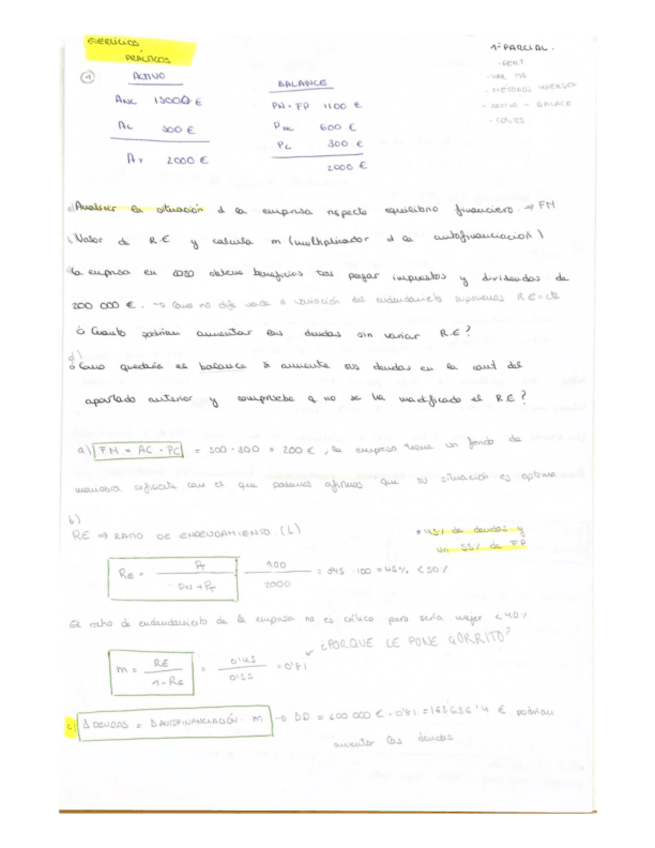 EJERCICIOS
PRÁCTICOS
1º PARCIAL.
- PERT
- VAN TIR
① ACTIVO
BALANCE
ANC 15000 €
PN = FP 1100 €
AC 500 €
PNC 600 €
PC 300 €
AT 2000 €
2000 €
a) Analizar la situación d la empresa respecto equilibrio financiero → FM
b) Valor de R.E y calcula m (multiplicador d la autofinanciación)
c) la empresa en 2020 obtuvo beneficios tras pagar impuestos y dividendos de
200 000 €. → Como no dice nada a variación del endeudamiento suponemos R.E = cte
¿Cuanto podrían aumentar las deudas sin variar R.E?
d)
¿Como quedaría el balance si aumenta sus deudas en la cant del
apartado anterior y comprueba q no se ha modificado el R.E?
a) FM = AC - PC = 500 - 300 = 200 €, la empresa tiene un fondo de
maniobra suficiente con el que podemos afirmar que su situación es optima
b)
RE ⇒ RATIO DE ENDEUDAMIENTO (L)
* 45% de deudas y
un 55% de FP
RE = PT / PN + PT 900 / 2000 = 0'45 · 100 = 45% < 50%
El ratio de endeudamiento de la empresa no es crítico pero sería mejor < 40%
¿PORQUE LE PONE GORRITO?
m = RE / 1 - RE = 0'45 / 0'55 = 0'81
c) Δ DEUDAS = Δ AUTOFINANCIACIÓN · m → ΔD = 200 000 € · 0'81 = 163636'4 € podrían
aumentar las deudas